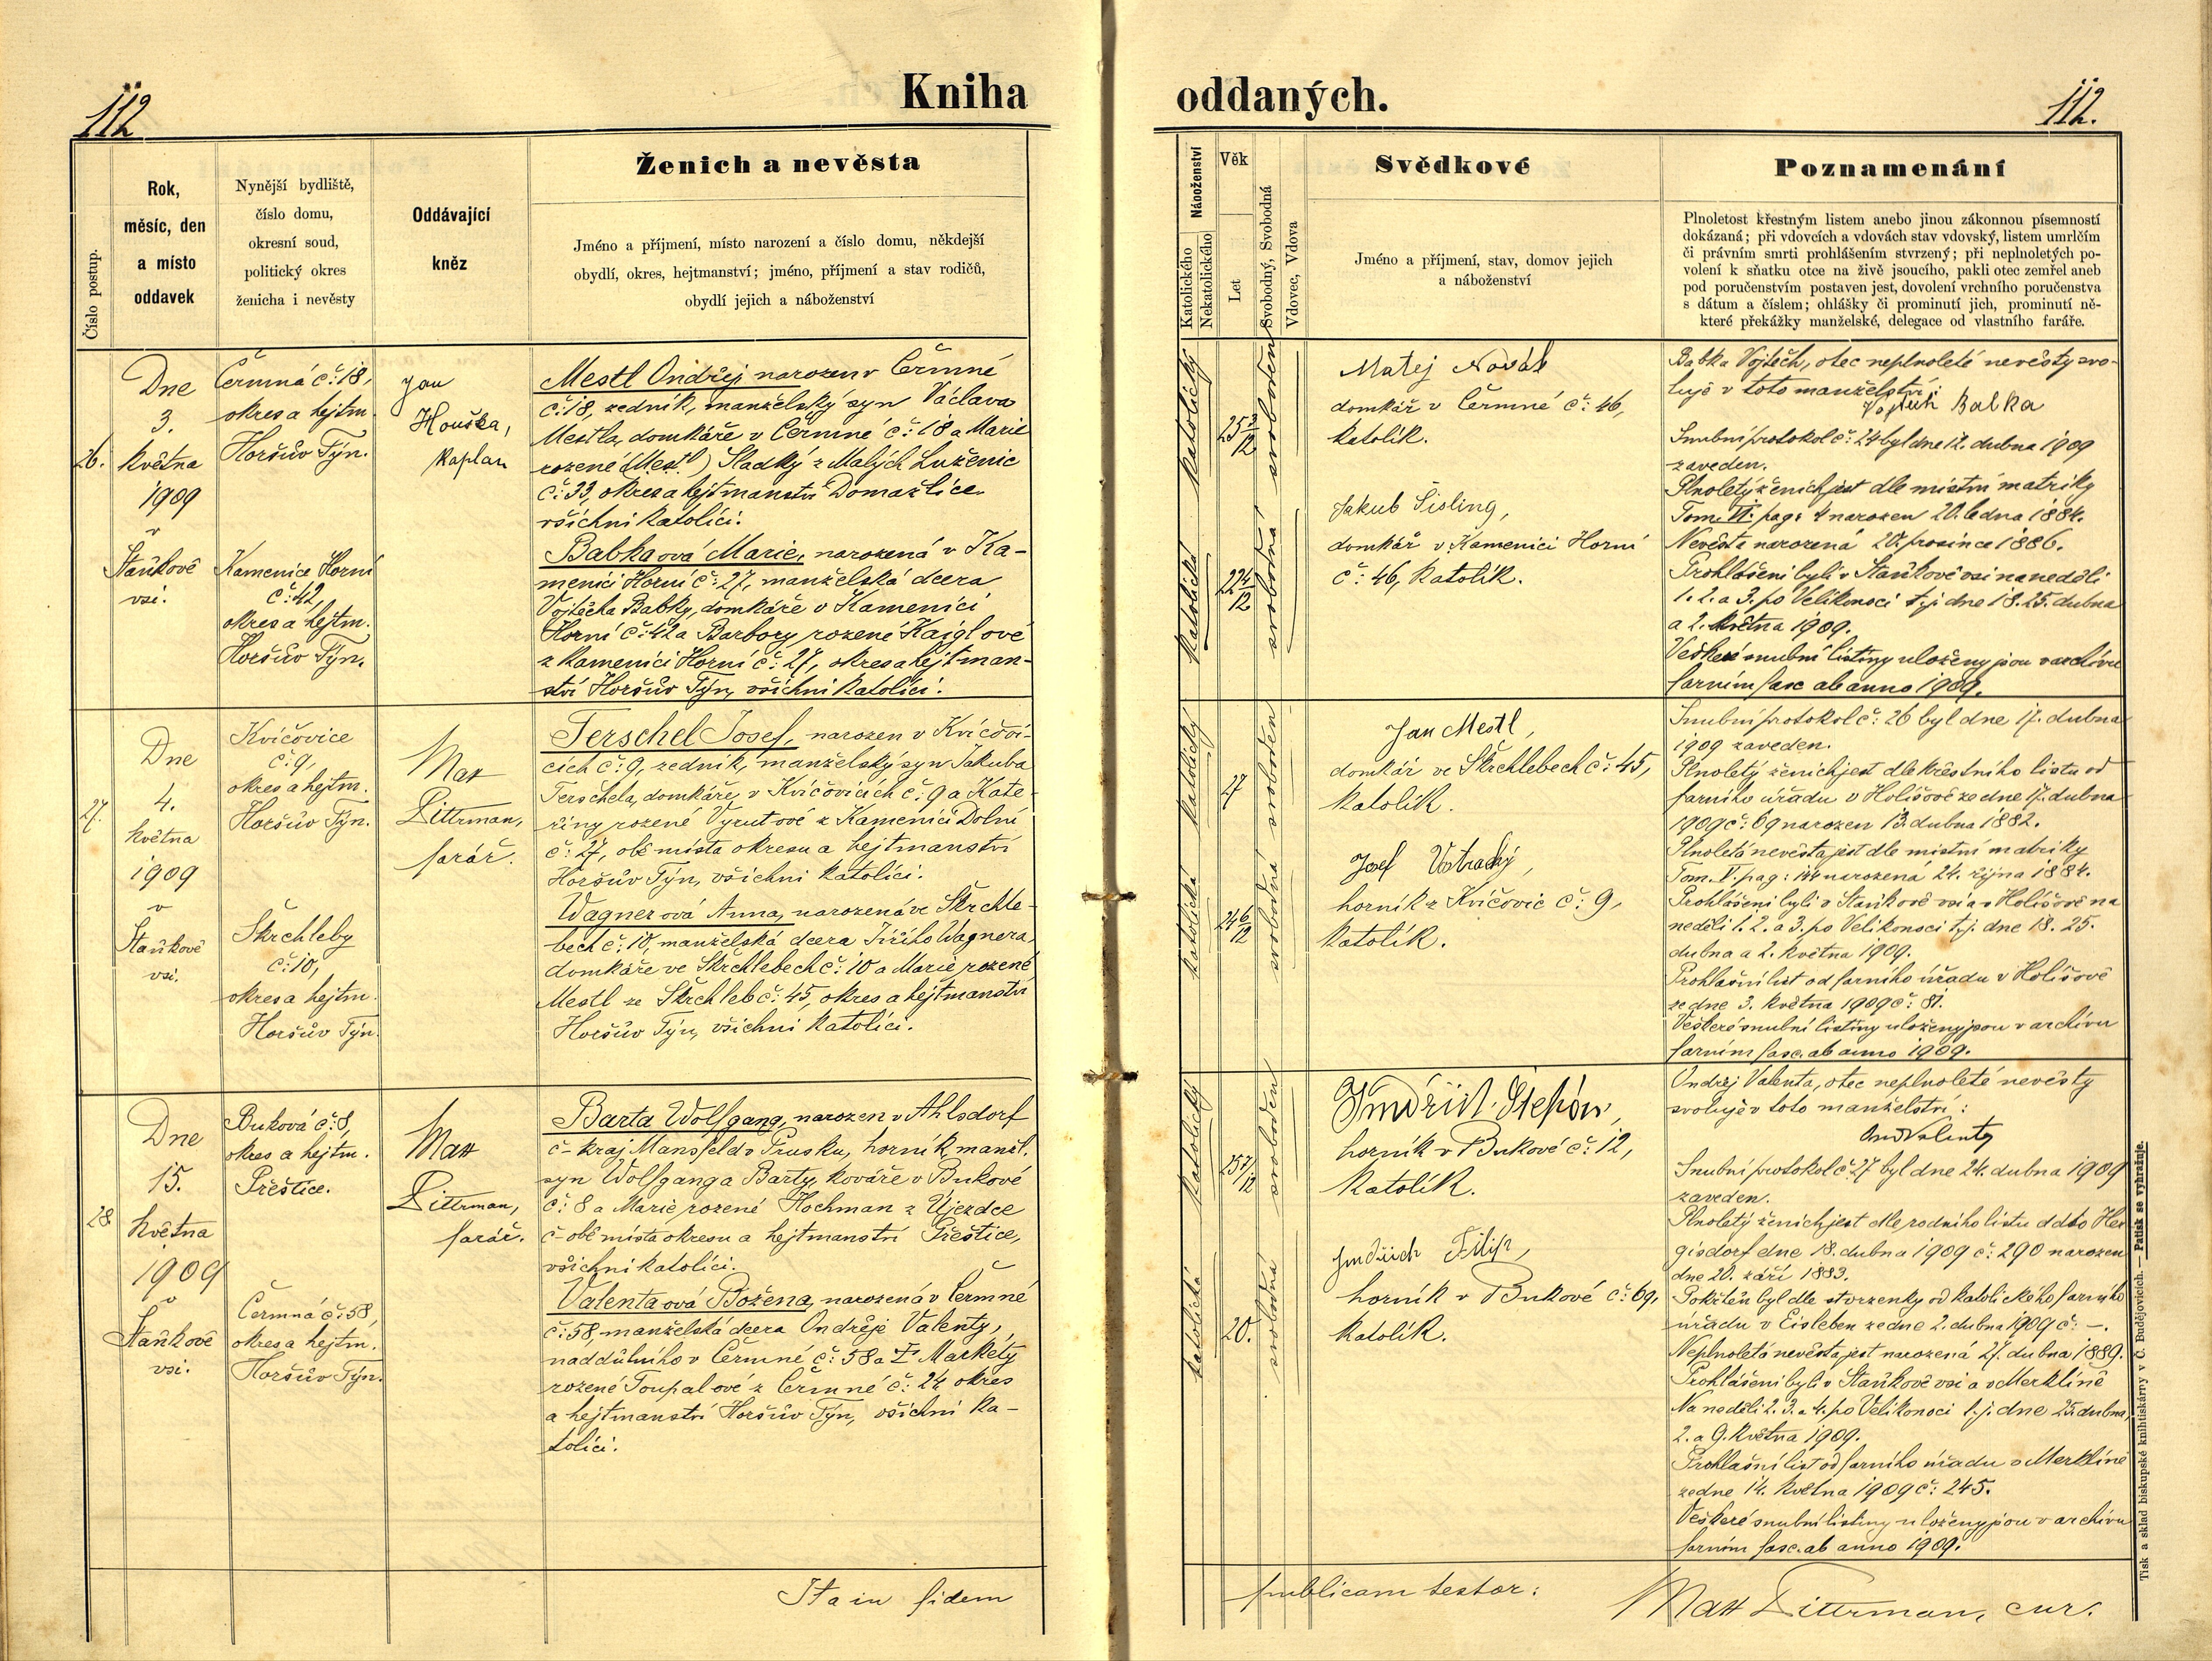 112
Kniha
Číslo postup.
Rok,
měsíc, den
a místo
oddavek
Nynější bydliště,
číslo domu,
okresní soud,
politický okres
ženicha i nevěsty
Oddávající
kněz
Ženich a nevěsta
Jméno a příjmení, místo narození a číslo domu, někdejší
obydlí, okres, hejtmanství; jméno, příjmení a stav rodičů,
obydlí jejich a náboženství
26.
Dne
3.
května
1909
v
Staňkově
vsi.
Čermná č: 18,
okres a hejtm.
Horšův Týn.
Kamenice Horní
č: 42,
okres a hejtm.
Horšův Týn.
Jan
Houška,
kaplan
Mestl Ondřej narozen v Čermné
č: 18, zedník, manželský syn Václava
Mestla, domkáře v Čermné č: 18 a Marie
rozené (Mestl) Sladký z Malých Luženic
č: 33, okres a hejtmanství Domažlice.
všichni katolíci.
Babka ová Marie, narozená v Ka-
menici Horní č: 27, manželská dcera
Vojtěcha Babky, domkáře v Kamenici
Horní č: 42 a Barbory rozené Kaiglové
z Kamenici Horní č: 27, okres a hejtman-
ství Horšův Týn, všichni katolíci.
27.
Dne
4.
května
1909
v
Staňkově
vsi.
Kvíčovice
č: 9,
okres a hejtm.
Horšův Týn.
Škrchleby
č: 10,
okres a hejtm.
Horšův Týn.
Mat
Dittrman,
farář.
Terschel Josef, narozen v Kvíčovi-
cích č: 9, zedník, manželský syn Jakuba
Terschela, domkáře, v Kvíčovicích č: 9 a Kate-
řiny rozené Vyrutové z Kamenici Dolní
č: 27, obě místa okresu a hejtmanství
Horšův Týn, všichni katolíci.
Wagner ová Anna, narozená ve Škrchle-
bech č: 10, manželská dcera Jiřího Wagnera,
domkáře ve Škrchlebech č: 10 a Marie rozené
Mestl ze Škrchleb č: 45, okres a hejtmanství
Horšův Týn, všichni katolíci.
28
Dne
15.
května
1909
v
Staňkově
vsi.
Buková č: 8,
okres a hejtm.
Přeštice.
Čermná č: 58,
okres a hejtm.
Horšův Týn.
Mat
Dittrman,
farář.
Barta Wolfgang, narozen v Ahlsdorf
č- kraj Mansfeld v Prusku, horník, manžl.
syn Wolfganga Barty, kováře v Bukové
č: 8 a Marie rozené Hochman z Újezdce
č- obě místa okresu a hejtmanství Přeštice,
všichni katolíci.
Valenta ová Božena, narozená v Čermné
č: 58, manželská dcera Ondřeje Valenty,
naddůlního v Čermné č: 58 a Markéty
rozené Toupalové z Čermné č: 24 okres
a hejtmanství Horšův Týn, všichni ka-
tolíci.
Ita in fidem
oddaných.
112.
Náboženství
Katolického
Nekatolického
Věk
Let
Svobodný, Svobodná
Vdovec, Vdova
Svědkové
Jméno a příjmení, stav, domov jejich
a náboženství
Poznamenání
Plnoletost křestným listem anebo jinou zákonnou písemností
dokázaná; při vdovcích a vdovách stav vdovský, listem umrlčím
či právním smrti prohlášením stvrzený; při neplnoletých po-
volení k sňatku otce na živě jsoucího, pakli otec zemřel aneb
pod poručenstvím postaven jest, dovolení vrchního poručenstva
s dátum a číslem; ohlášky či prominutí jich, prominutí ně-
které překážky manželské, delegace od vlastního faráře.
katolický
25 3/12
svoboden
katolická
22 4/12
svobodná
Matej Novák
domkář v Čermné č: 46,
katolík.
Jakub Šisling,
domkář v Kamenici Horní
č: 46, katolík.
Babka Vojtěch, otec neplnoleté nevěsty svo-
luje v toto manželství:
Vojtěch Babka
Snubní protokol č: 24 byl dne 12. dubna 1909
zaveden.
Plnoletý ženich jest dle místní matriky
Tom. VI. pag: 4 narozen 20. ledna 1884.
Nevěsta narozená 20. prosince 1886.
Prohlášeni byli v Staňkově vsi na neděli
1. 2. a 3. po Velikonoci t. j. dne 18. 25. dubna
a 2. května 1909.
Veškeré snubní listiny uloženy jsou v archivu
farním fasc. ab anno 1909.
katolický
27
svoboden
katolická
24 6/12
svobodná
Jan Mestl,
domkář ve Škrchlebech č: 45,
katolík.
Josef Votracký,
horník z Kvíčovic č: 9,
katolík.
Snubní protokol č: 26 byl dne 17. dubna
1909 zaveden.
Plnoletý ženich jest dle křestního listu od
farního úřadu v Holišově ze dne 17. dubna
1909 č: 69 narozen 13. dubna 1882.
Plnoletá nevěsta jest dle místní matriky
Tom. V. pag: 144 narozená 24. října 1884.
Prohlášeni byli v Staňkově vsi a v Holišově na
neděli 1. 2. a 3. po Velikonoci t. j. dne 18. 25.
dubna a 2. května 1909.
Prohlašní list od farního úřadu v Holišově
ze dne 3. května 1909 č: 81.
Veškeré snubní listiny uloženy jsou v archivu
farním fasc. ab anno 1909.
katolický
25 7/12
svoboden
katolická
20.
svobodná
Jindřich Štepán,
horník v Bukové č: 12,
katolík.
Jindřich Filip,
horník v Bukové č: 69,
katolík.
Ondřej Valenta, otec neplnoleté nevěsty
svoluje v toto manželství:
Ond Valenta
Snubní protokol č: 27 byl dne 24. dubna 1909
zaveden.
Plnoletý ženich jest dle rodního listu ddto Her
gisdorf dne 18. dubna 1909 č: 290 narozen
dne 20. září 1883.
Pokřtěn byl dle stvrzenky od katolického farního
úřadu v Eisleben ze dne 2. dubna 1909 č: -.
Neplnoletá nevěsta jest narozená 27. dubna 1889.
Prohlášeni byli v Staňkově vsi a v Merklíně
Na neděli 2. 3. a 4. po Velikonoci t. j. dne 25. dubna,
2. a 9. května 1909.
Prohlašní list od farního úřadu v Merklíně
ze dne 14. května 1909 č: 245.
Veškeré snubní listiny uloženy jsou v archivu
farním fasc. ab anno 1909.
publicam testor:
Mat Dittrman, cur.
Tisk a sklad biskupské knihtiskárny v Č. Budějovicích. — Patisk se vyhražuje.